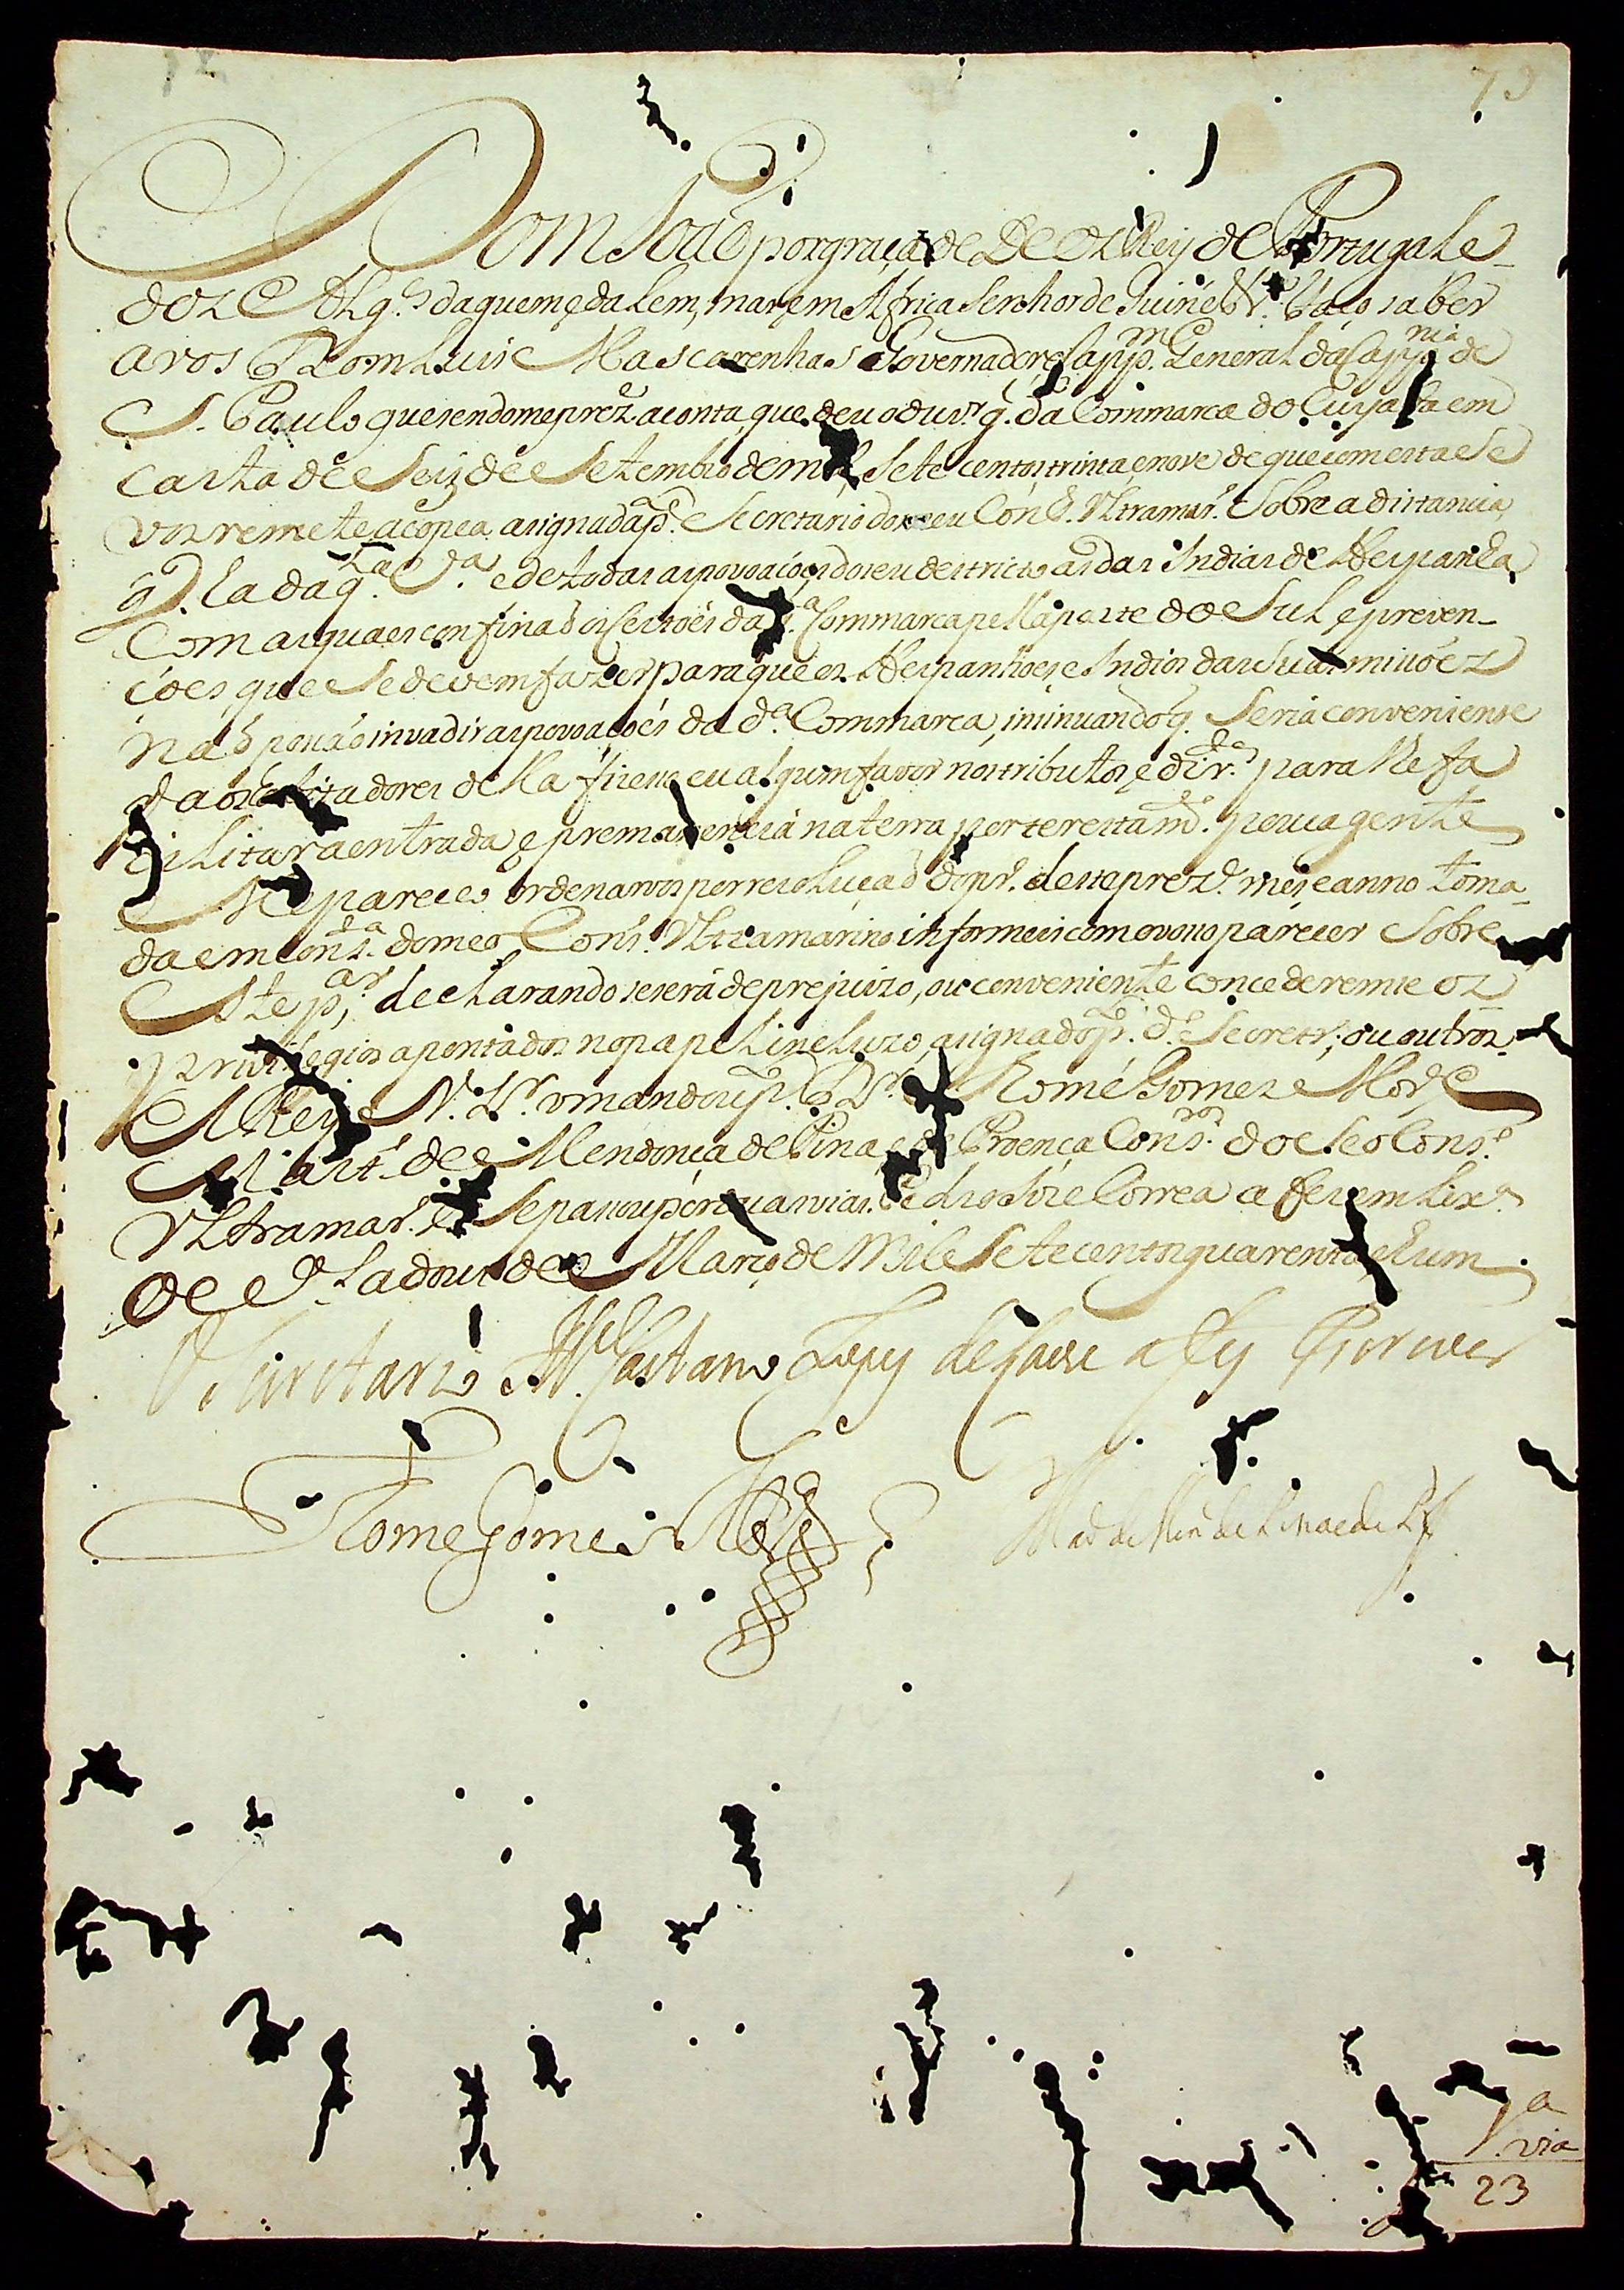 79
Dom Joaõ por graça de Deos Rey de Portugal e
dos Alg.es daquem, e dalem, mar em Africa Senhor de Guiné &.ª Faço saber
a vos Dom Luis Mascarenhas Governador e Capp.m General da Capp.nia de
S. Paulo que sendome prez.e a conta, que deu o ouv.or g.l da Commarca do Cuyaba em
carta de Seis de Setembro de mil Sete centos trinta, e nove de que com esta se
vos remete a copea asignada p.lo Secretario do meu Con.o Ultramar.o Sobre a distancia,
q. ha daq.la V.a e de todas as povoaçoẽs do seu destricto as das Indias de Hespanha,
Com as quaes confinaõ os Certoẽs da d.a Commarca pella parte do Sul, e preven-
çoẽs que Se devem fazer para que os Hespanhoes, e Indios das Suas missoẽs
naõ possaõ invadir as povoaçoẽs da d.a Commarca, insinuando q. Seria conveniente
q aos habitadores della fizesse eu algum favor nos tributos, e dir.tos para Se fa
cilitar a entrada, e premanencia na terra por ter esta m.to pouca gente
Me pareceo ordenarvos por resoluçaõ do pr.o deste prez.e mes, e anno toma-
da em cons.ta do meo Cons.o Ultramarino informeis com o vosso parecer Sobre
este p.ar, declarando se será de prejuizo, ou conveniente concederemse os
privilegios apontados no papel incluzo, asignado p.lo d.o Secretr.o, ou outros.
El Rey N. S.r o mandou p.los D.rs Thomé Gomes Mor.a e
Mart.o de Mendonça de Pina, e de Proença Cons.ros do Seo Cons.o
Ultramar.o e Se passou por duas vias. Pedro Jozé Correa a fez em Lix.a
oc.al a dous de Março de Mil e Sete centos quarenta, e hum.
O Secretario M.el Caetano Lopes de Lavre a fez escrever
Thome Gomes Mor.a
Mar.o de Men.ça de Pina e de Pr.ça
1.a via
23